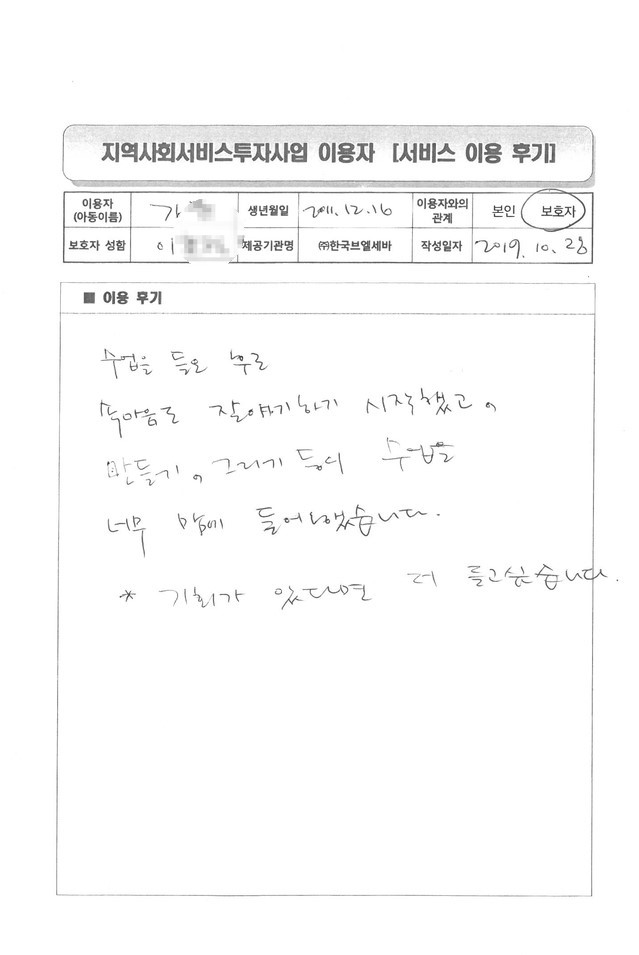 지역사회서비스투자사업 이용자 [서비스 이용 후기]
이용자 (아동이름) 가 생년월일 2011.12.16 이용자와의 관계 본인 보호자
보호자 성함 이 제공기관명 ㈜한국브엘세바 작성일자 2019. 10. 28
■ 이용 후기
수업을 들은 후로
속마음도 잘 야기하기 시작했고,
만들기, 그리기 등의 수업을
너무 맘에 들어했습니다.
* 기회가 있다면 더 듣고싶습니다.